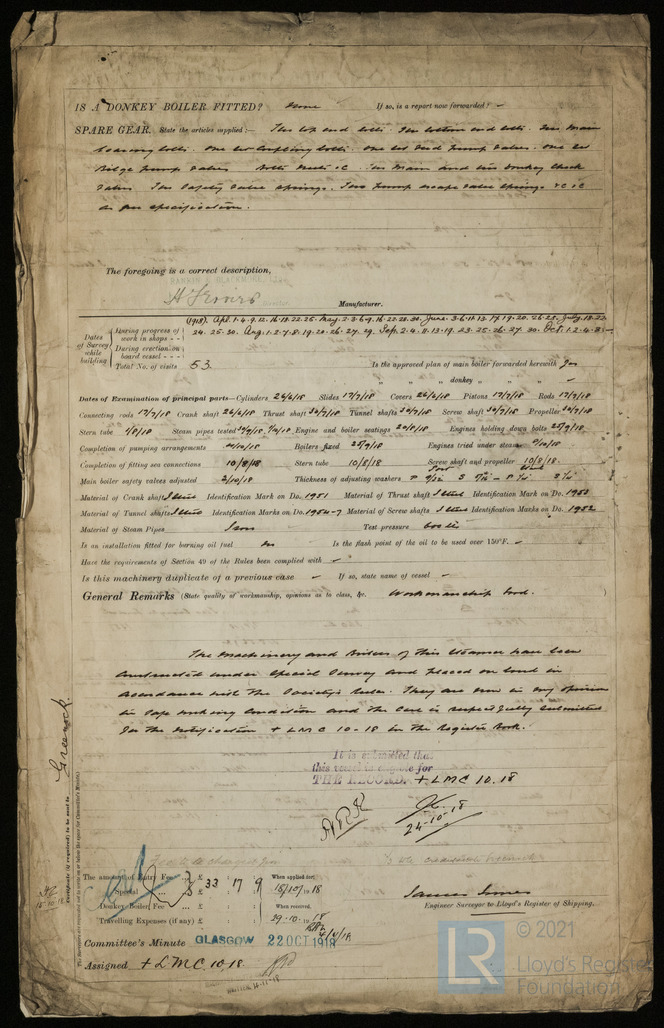 IS A DONKEY BOILER FITTED? None If so, is a report now forwarded? -
SPARE GEAR. State the articles supplied:- Two top end bolts. Two bottom end bolts. Two Main
bearing bolts. One set Coupling bolts. One set Feed Pump Valves. One set
Bilge Pump Valves Bolts Nuts &c. Two Main and two Donkey Check
Valves. Two Safety Valve Springs. Two Pump escape Valve Springs &c &c
as per specification.
The foregoing is a correct description,
Manufacturer.
Dates of Survey while building
During progress of work in shops - -
During erection on board vessel - - -
Total No. of visits
(1918). Apl. 1. 4. 9. 12. 16. 18. 22. 25. May. 2. 3. 6. 9. 16. 22. 28. 30. June. 3. 6. 11. 13. 17. 19. 20. 26. 28. July. 18. 23.
24. 25. 30. Aug. 1. 2. 7. 8. 19. 20. 26. 27. 29. Sep. 2. 4. 11. 13. 19. 23. 25. 26. 27. 30. Oct. 1. 2. 4. 8.
53.
Is the approved plan of main boiler forwarded herewith Yes
" " donkey " " "
Dates of Examination of principal parts—Cylinders 26/6/18 Slides 17/7/18 Covers 26/6/18 Pistons 17/7/18 Rods 17/7/18
Connecting rods 17/7/18 Crank shaft 26/6/18 Thrust shaft 30/7/18 Tunnel shafts 30/7/18 Screw shaft 30/7/18 Propeller 30/7/18
Stern tube 1/8/18 Steam pipes tested Engine and boiler seatings 20/8/18 Engines holding down bolts 25/9/18
Completion of pumping arrangements Boilers fixed 25/9/18 Engines tried under steam
Completion of fitting sea connections 10/8/18 Stern tube 10/8/18 Screw shaft and propeller 10/8/18
Main boiler safety valves adjusted 2/10/18 Thickness of adjusting washers
Material of Crank shaft Steel Identification Mark on Do. 1951 Material of Thrust shaft Steel Identification Mark on Do. 1953
Material of Tunnel shafts Steel Identification Marks on Do. 1954-7 Material of Screw shafts Steel Identification Marks on Do. 1952
Material of Steam Pipes Iron Test pressure 600 lbs
Is an installation fitted for burning oil fuel no Is the flash point of the oil to be used over 150°F. -
Have the requirements of Section 49 of the Rules been complied with -
Is this machinery duplicate of a previous case - If so, state name of vessel -
General Remarks (State quality of workmanship, opinions as to class, &c. Workmanship Good.
The Machinery and Boilers of this Steamer have been
constructed under Special Survey and placed on board in
accordance with the Society's Rules. They are now in my opinion
in safe working condition and the Case is respectfully submitted
for the notification + LMC 10-18 in the Register Book.
It is submitted that
this vessel is eligible for
THE RECORD. + LMC 10.18
24-10-18
Greenock.
Certificate (if required) to be sent to
The amount of Entry Fee
Special £ 33 : 17 : 9
Donkey Boiler Fee
Travelling Expenses (if any) £
When applied for,
15/10/18
When received,
29-10-18
James Innes
Engineer Surveyor to Lloyd's Register of Shipping.
Committee's Minute GLASGOW 22 OCT 1918
Assigned + LMC 10.18.
LR © 2021
Lloyd's Register
Foundation